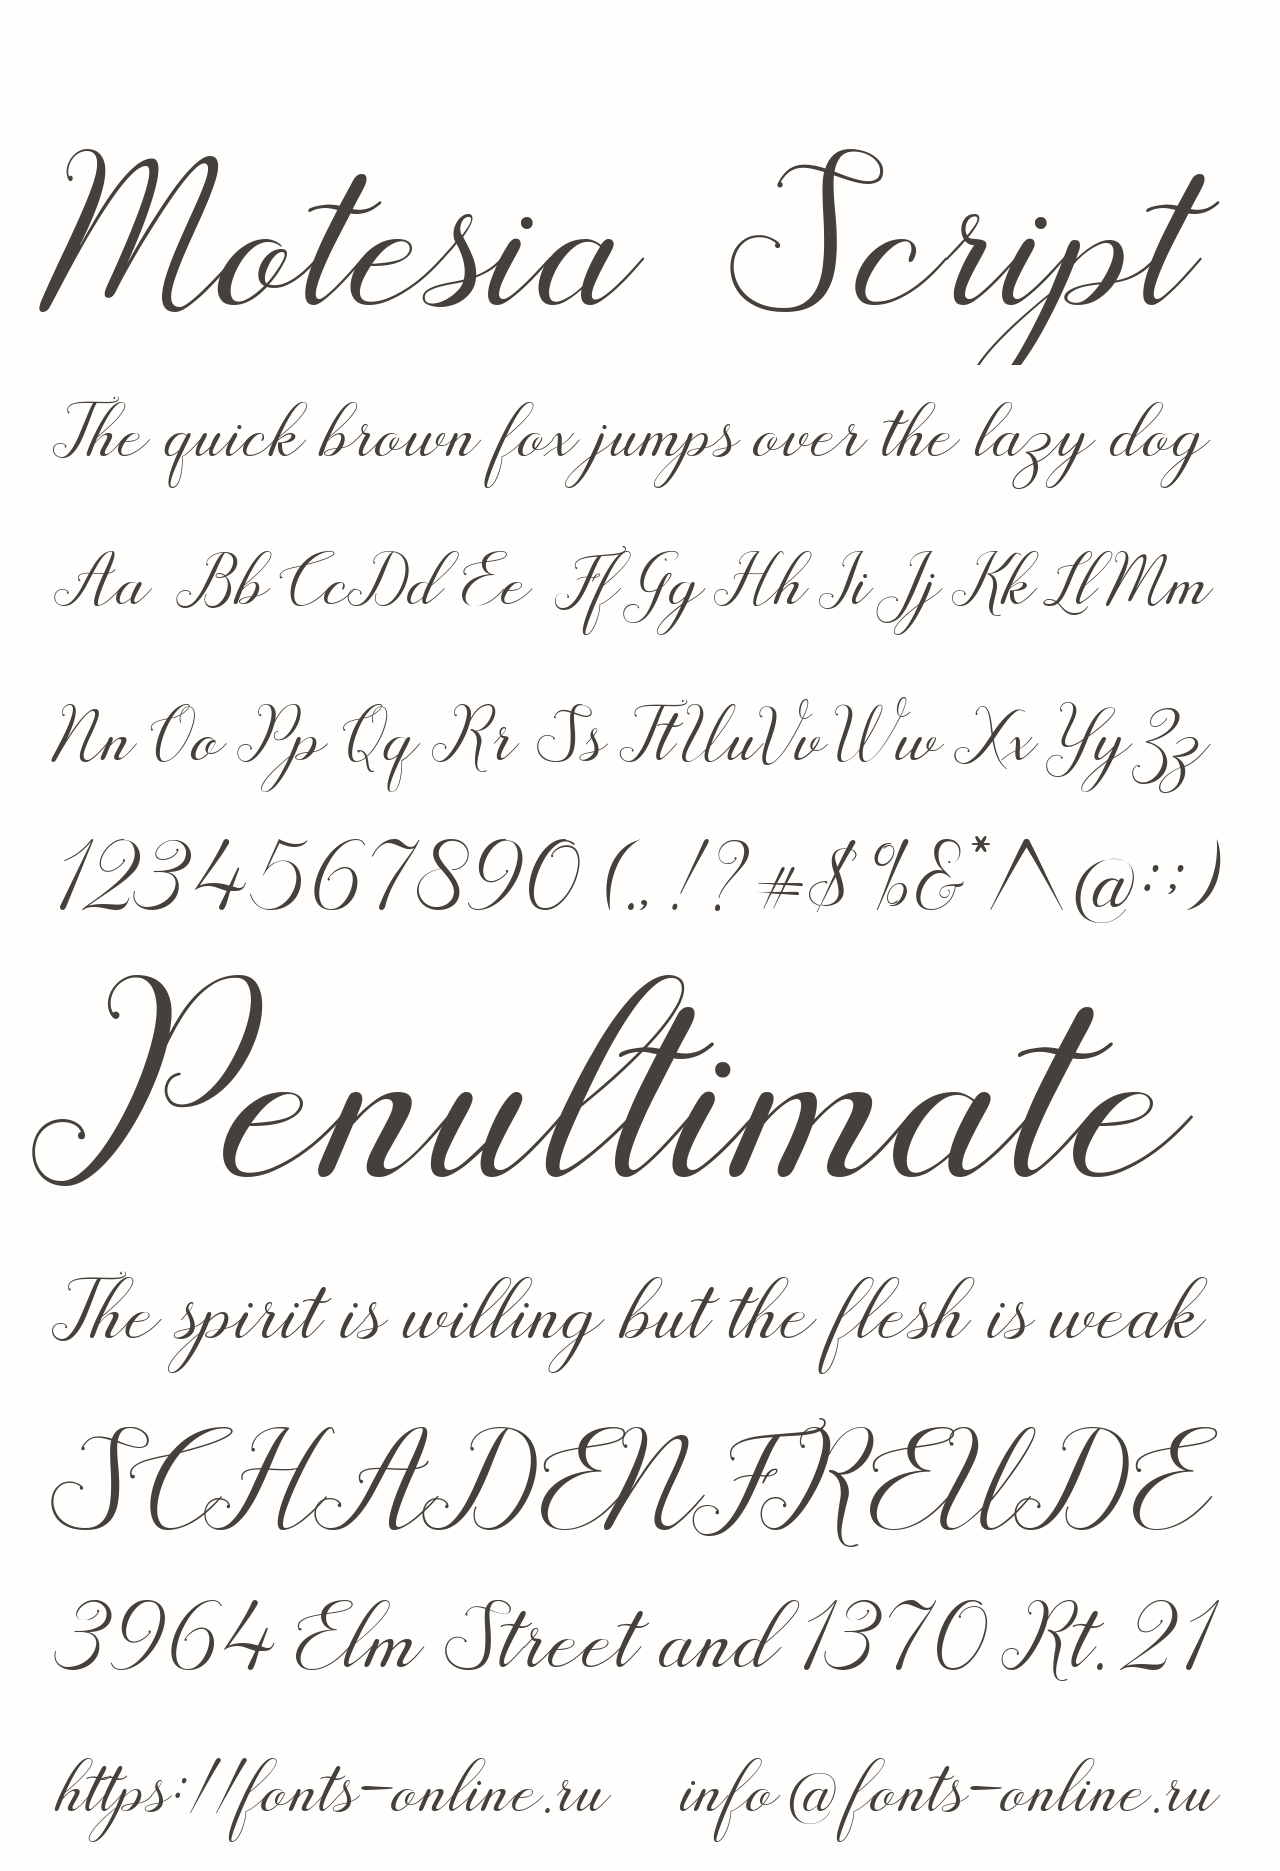 Motesia Script
The quick brown fox jumps over the lazy dog
Aa Bb Cc Dd Ee Ff Gg Hh Ii Jj Kk Ll Mm
Nn Oo Pp Qq Rr Ss Tt Uu Vv Ww Xx Yy Zz
1234567890 (.,!? #$%&*^@:;)
Penultimate
The spirit is willing but the flesh is weak
SCHADENFREUDE
3964 Elm Street and 1370 Rt. 21
https://fonts-online.ru info@fonts-online.ru